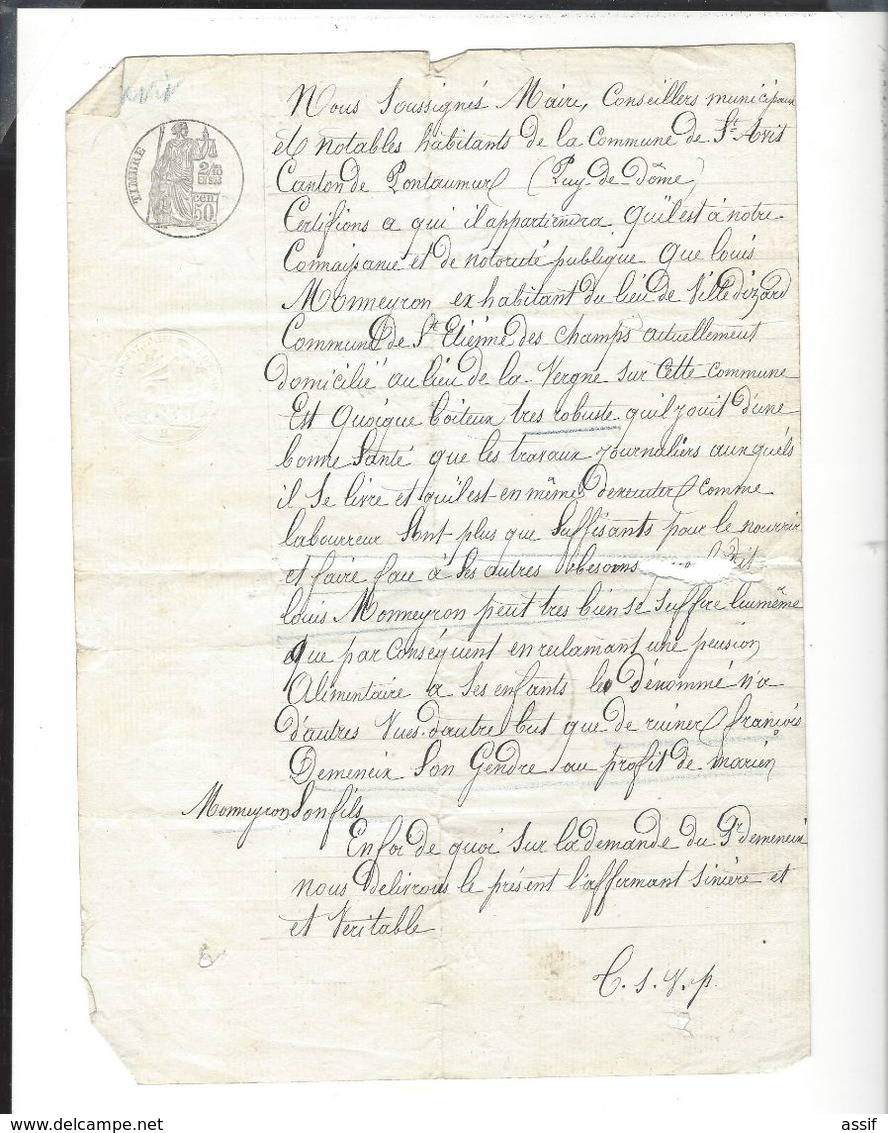 TIMBRE
2/10
EN SUS
50 cen
Nous Soussignés Maire, Conseillers municipaux
et notables habitants de la Commune de St Avit
Canton de Pontaumur (Puy-de-Dôme)
Certifions a qui il appartiendra, qu'il est à notre
Connaissance et de notoriété publique que louis
Monneyron ex habitant du lieu de Ville dizard
Commune de St Etienne des champs actuellement
domicilié au lieu de la Vergne sur cette commune
Est quoique boiteux tres robuste qu'il jouit d'une
bonne Santé que les travaux journaliers auxquéls
il se livre et qu'il est en même d'executer comme
laboureur sont plus que Suffisants pour le nourrir
et faire face à Ses autres besoins dit
louis Monneyron peut tres bien se suffire lui même
que par conséquent en reclamant une pension
Alimentaire a Ses enfants le dénommé n'a
d'autres Vues d'autre but que de ruiner françois
Demeneix Son Gendre au profit de marien
Monneyron Son fils
En foi de quoi Sur la demande du Sr demeneix
nous delivrons le présent l'affirmant Sincère et
et Veritable
T. S. V. p.
assif